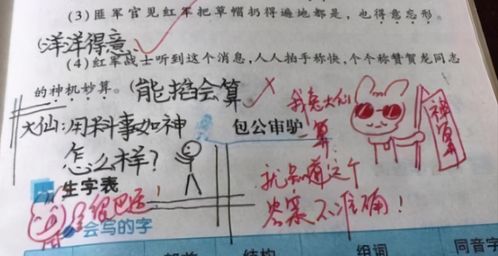 (3)匪军官见红军把草帽扔得遍地都是,也得意忘形。
(洋洋得意)
(4)红军战士听到这个消息,人人拍手称快,个个称赞贺龙同志
的神机妙算。(能掐会算)
大仙:用料事如神
怎么样?
包公审驴
我兔大仙
一算
就知道这个
答案不准确!
神算
生字表
会写的字
结构
组词
同音字